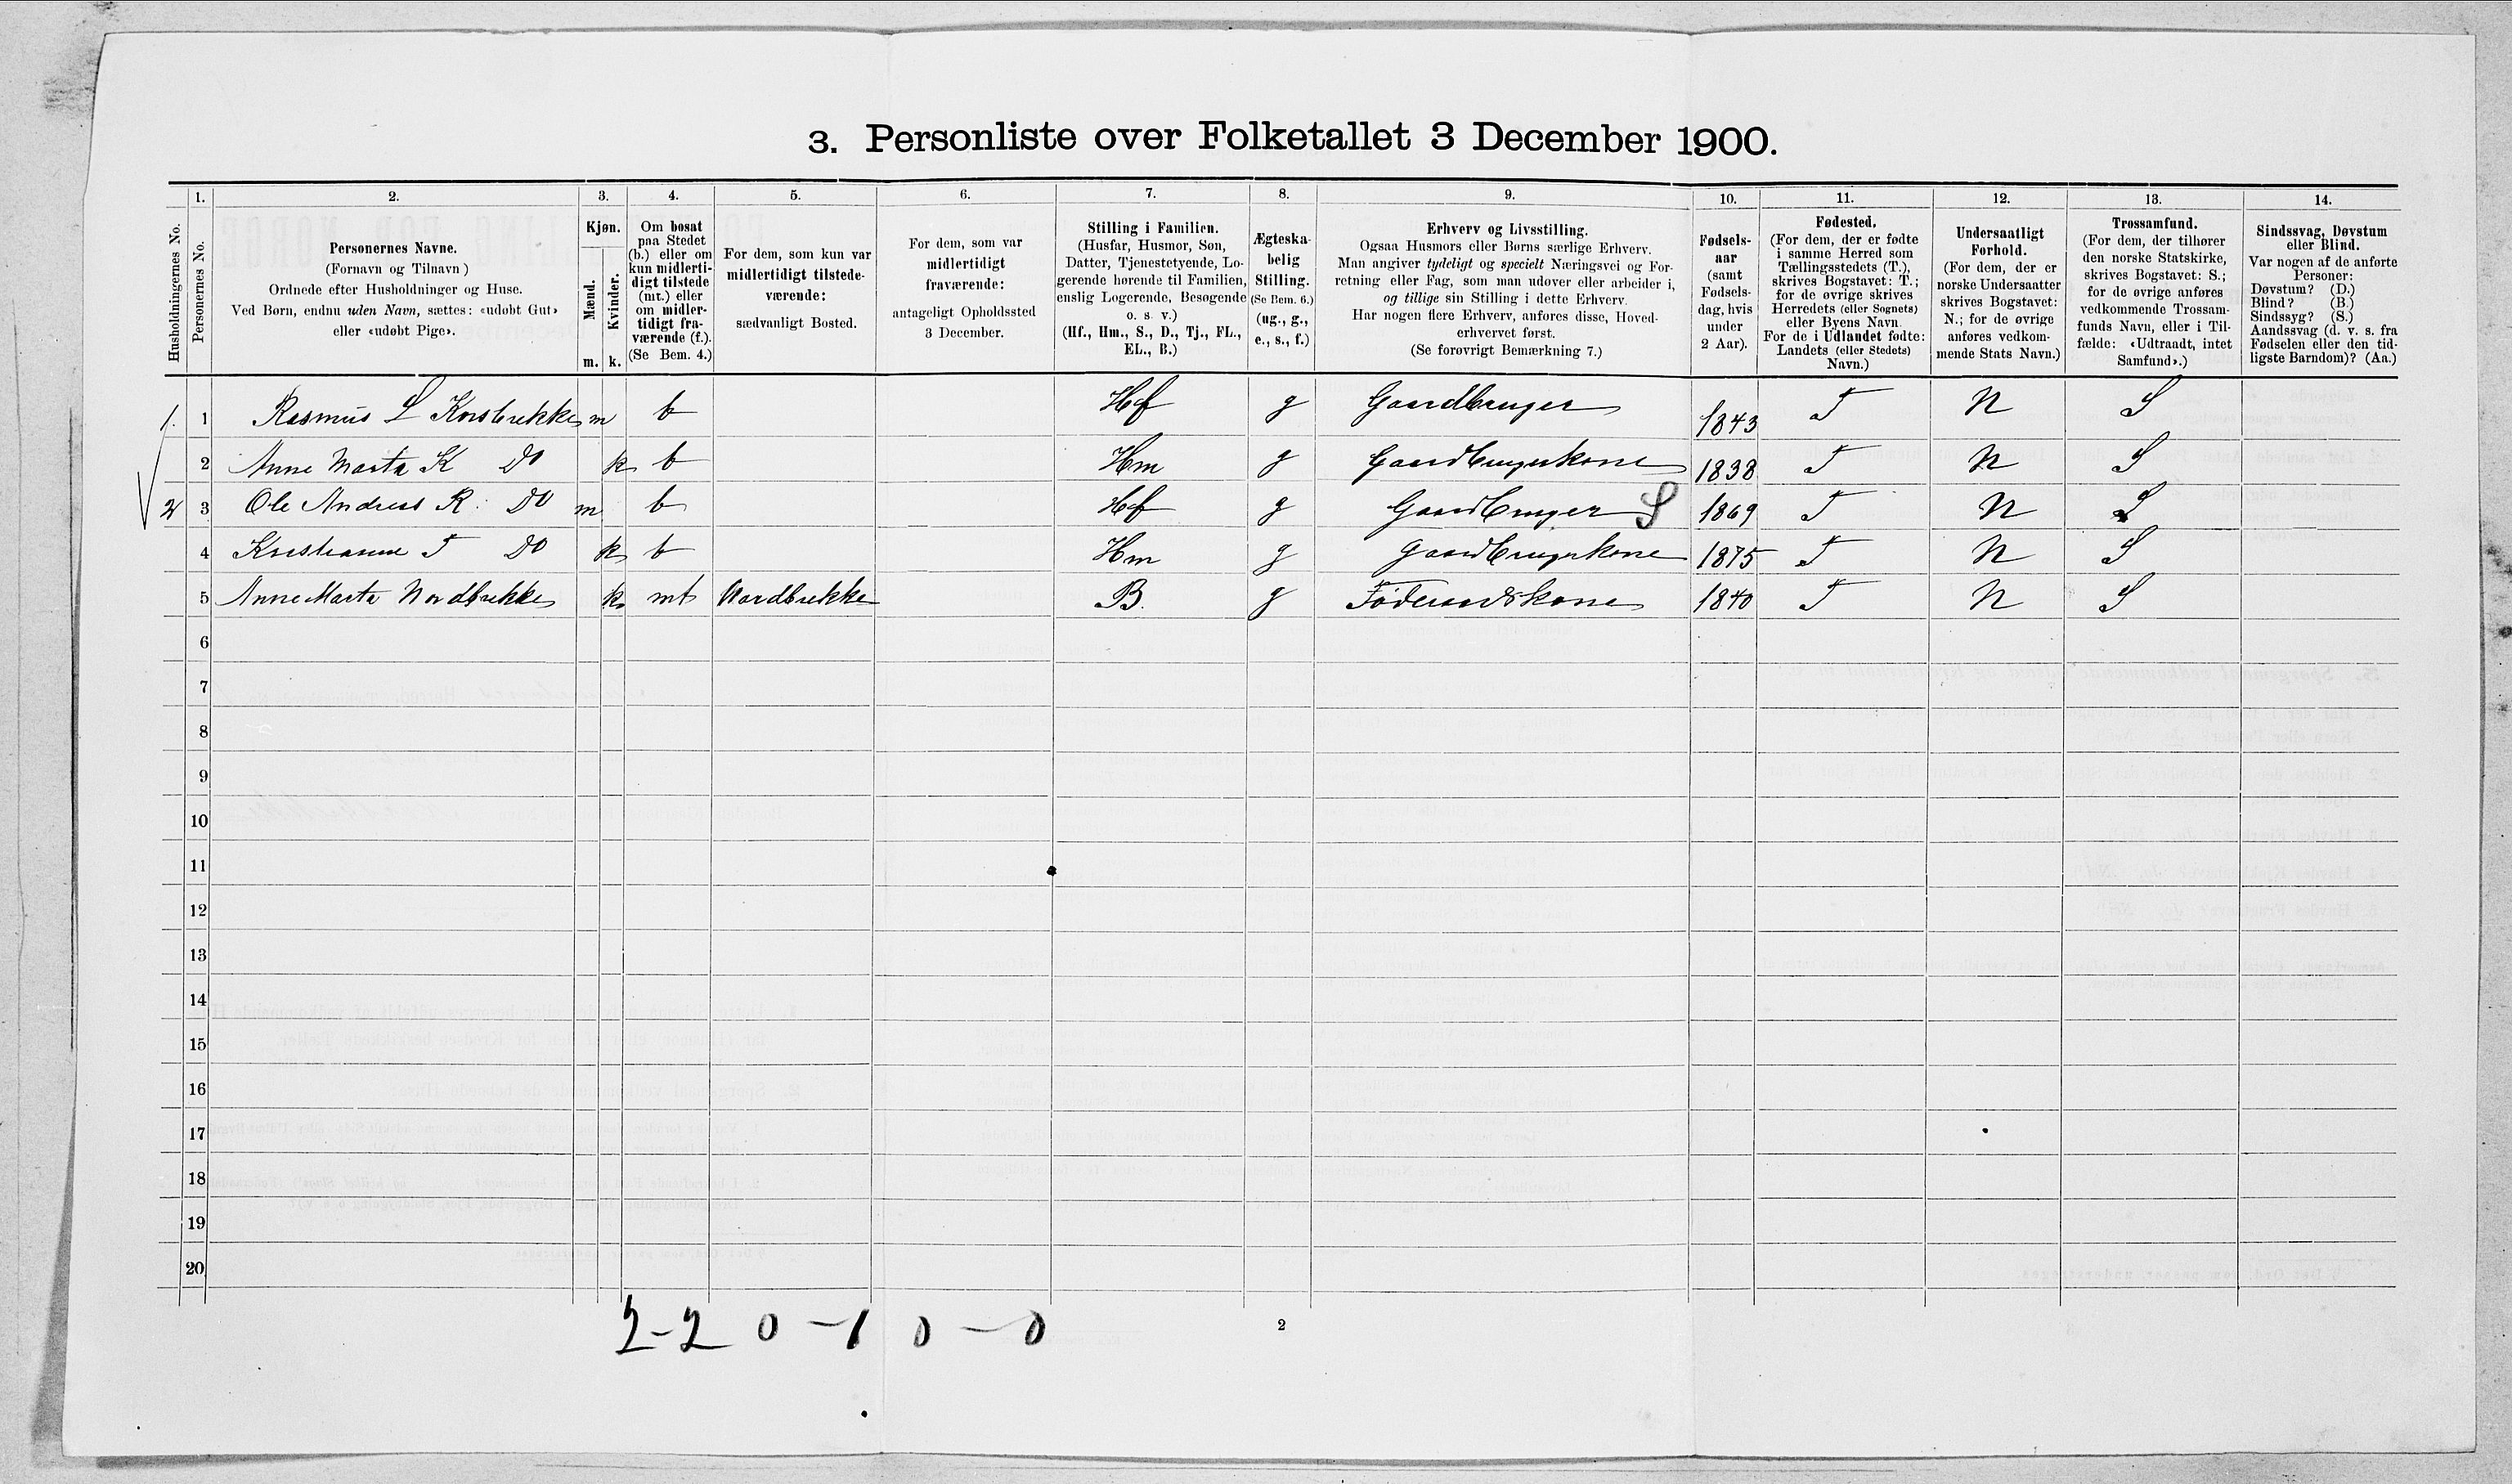 3. Personliste over Folketallet 3 December 1900.
Husholdningernes No.
1. Personernes No.
2. Personernes Navne.
(Fornavn og Tilnavn)
Ordnede efter Husholdninger og Huse.
Ved Børn, endnu uden Navn, sættes: «udøbt Gut»
eller «udøbt Pige».
3. Kjøn.
Mænd. Kvinder.
m. k.
4. Om bosat
paa Stedet
(b.) eller om
kun midlerti-
digt tilstede
(mt.) eller
om midler-
tidigt fra-
værende (f.).
(Se Bem. 4.)
5. For dem, som kun var
midlertidigt tilstede-
værende:
sædvanligt Bosted.
6. For dem, som var
midlertidigt
fraværende:
antageligt Opholdssted
3 December.
7. Stilling i Familien.
(Husfar, Husmor, Søn,
Datter, Tjenestetyende, Lo-
gerende hørende til Familien,
enslig Logerende, Besøgende
o. s. v.)
(Hf., Hm., S., D., Tj., FL.,
EL., B.)
8. Ægteska-
belig
Stilling.
(Se Bem. 6.)
(ug., g.,
e., s., f.)
9. Erhverv og Livsstilling.
Ogsaa Husmors eller Børns særlige Erhverv.
Man angiver tydeligt og specielt Næringsvei og For-
retning eller Fag, som man udøver eller arbeider i,
og tillige sin Stilling i dette Erhverv.
Har nogen flere Erhverv, anføres disse, Hoved-
erhvervet først.
(Se forøvrigt Bemærkning 7.)
10. Fødsels-
aar
(samt
Fødsels-
dag, hvis
under
2 Aar).
11. Fødested.
(For dem, der er fødte
i samme Herred som
Tællingsstedets (T.),
skrives Bogstavet: T.;
for de øvrige skrives
Herredets (eller Sognets)
eller Byens Navn.
For de i Udlandet fødte:
Landets (eller Stedets)
Navn.)
12. Undersaatligt
Forhold.
(For dem, der er
norske Undersaatter
skrives Bogstavet:
N.; for de øvrige
anføres vedkom-
mende Stats Navn.)
13. Trossamfund.
(For dem, der tilhører
den norske Statskirke,
skrives Bogstavet: S.;
for de øvrige anføres
vedkommende Trossam-
funds Navn, eller i Til-
fælde: «Udtraadt, intet
Samfund».)
14. Sindssvag, Døvstum
eller Blind.
Var nogen af de anførte
Personer:
Døvstum? (D.)
Blind? (B.)
Sindssyg? (S.)
Aandssvag (d. v. s. fra
Fødselen eller den tid-
ligste Barndom)? (Aa.)
1. 1 Rasmus L Korsbrekke m b Hf g Gaardbruger 1843 T N S
2 Anne Marta K Do k b Hm g Gaardbrugerkone 1838 T N S
2 3 Ole Andreas R. Do m b Hf g Gaardbruger S 1869 T N S
4 Kristianne T Do k b Hm g Gaardbrugerkone 1875 T N S
5 Anne Marta Nordbrekke k mt Nordbrekke B. g Føderaadskone 1840 T N S
6
7
8
9
10
11
12
13
14
15
16
17
18
19
20
2-2 0-1 0-0
2